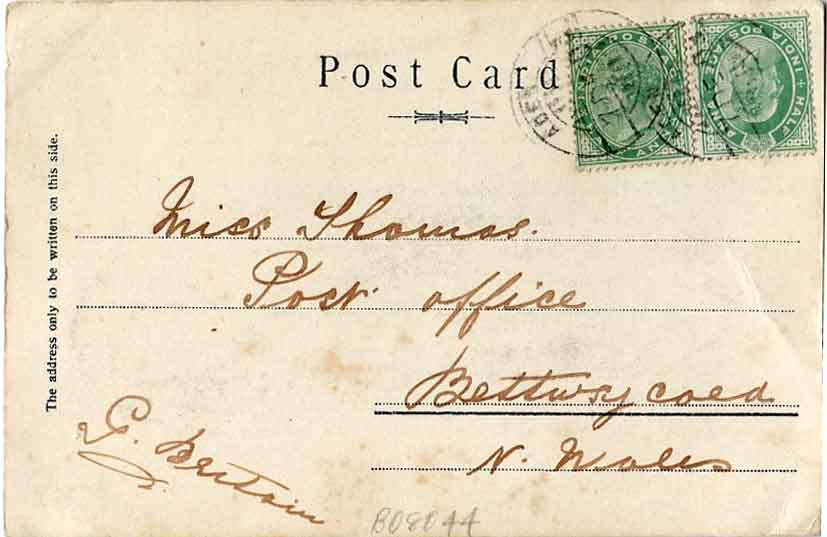 Post Card
ADEN
INDIA POSTAGE
HALF ANNA
INDIA POSTAGE
HALF ANNA
The address only to be written on this side.
Miss Thomas.
Post office
Bettwsycoed
N. Wales
G. Britain
B08044